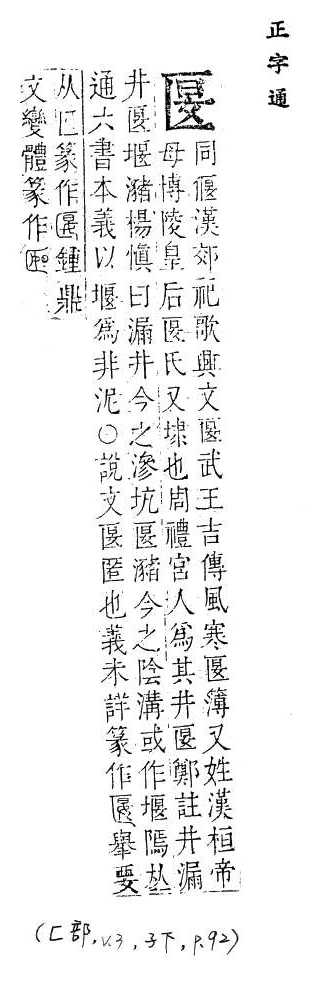 正字通
匽
同偃漢郊祀歌興文匽武王吉傳風寒匽簿又姓漢桓帝
母博陵皇后匽氏又埭也周禮宮人爲其井匽鄭註井漏
井匽堰瀦楊愼曰漏井今之滲坑匽瀦今之陰溝或作堰𠀤
通六書本義以堰爲非泥〇說文匽匿也義未詳篆作匽舉要
从匸篆作匽鍾鼎
文變體篆作
(匸部, v.3, 子下, p.92)